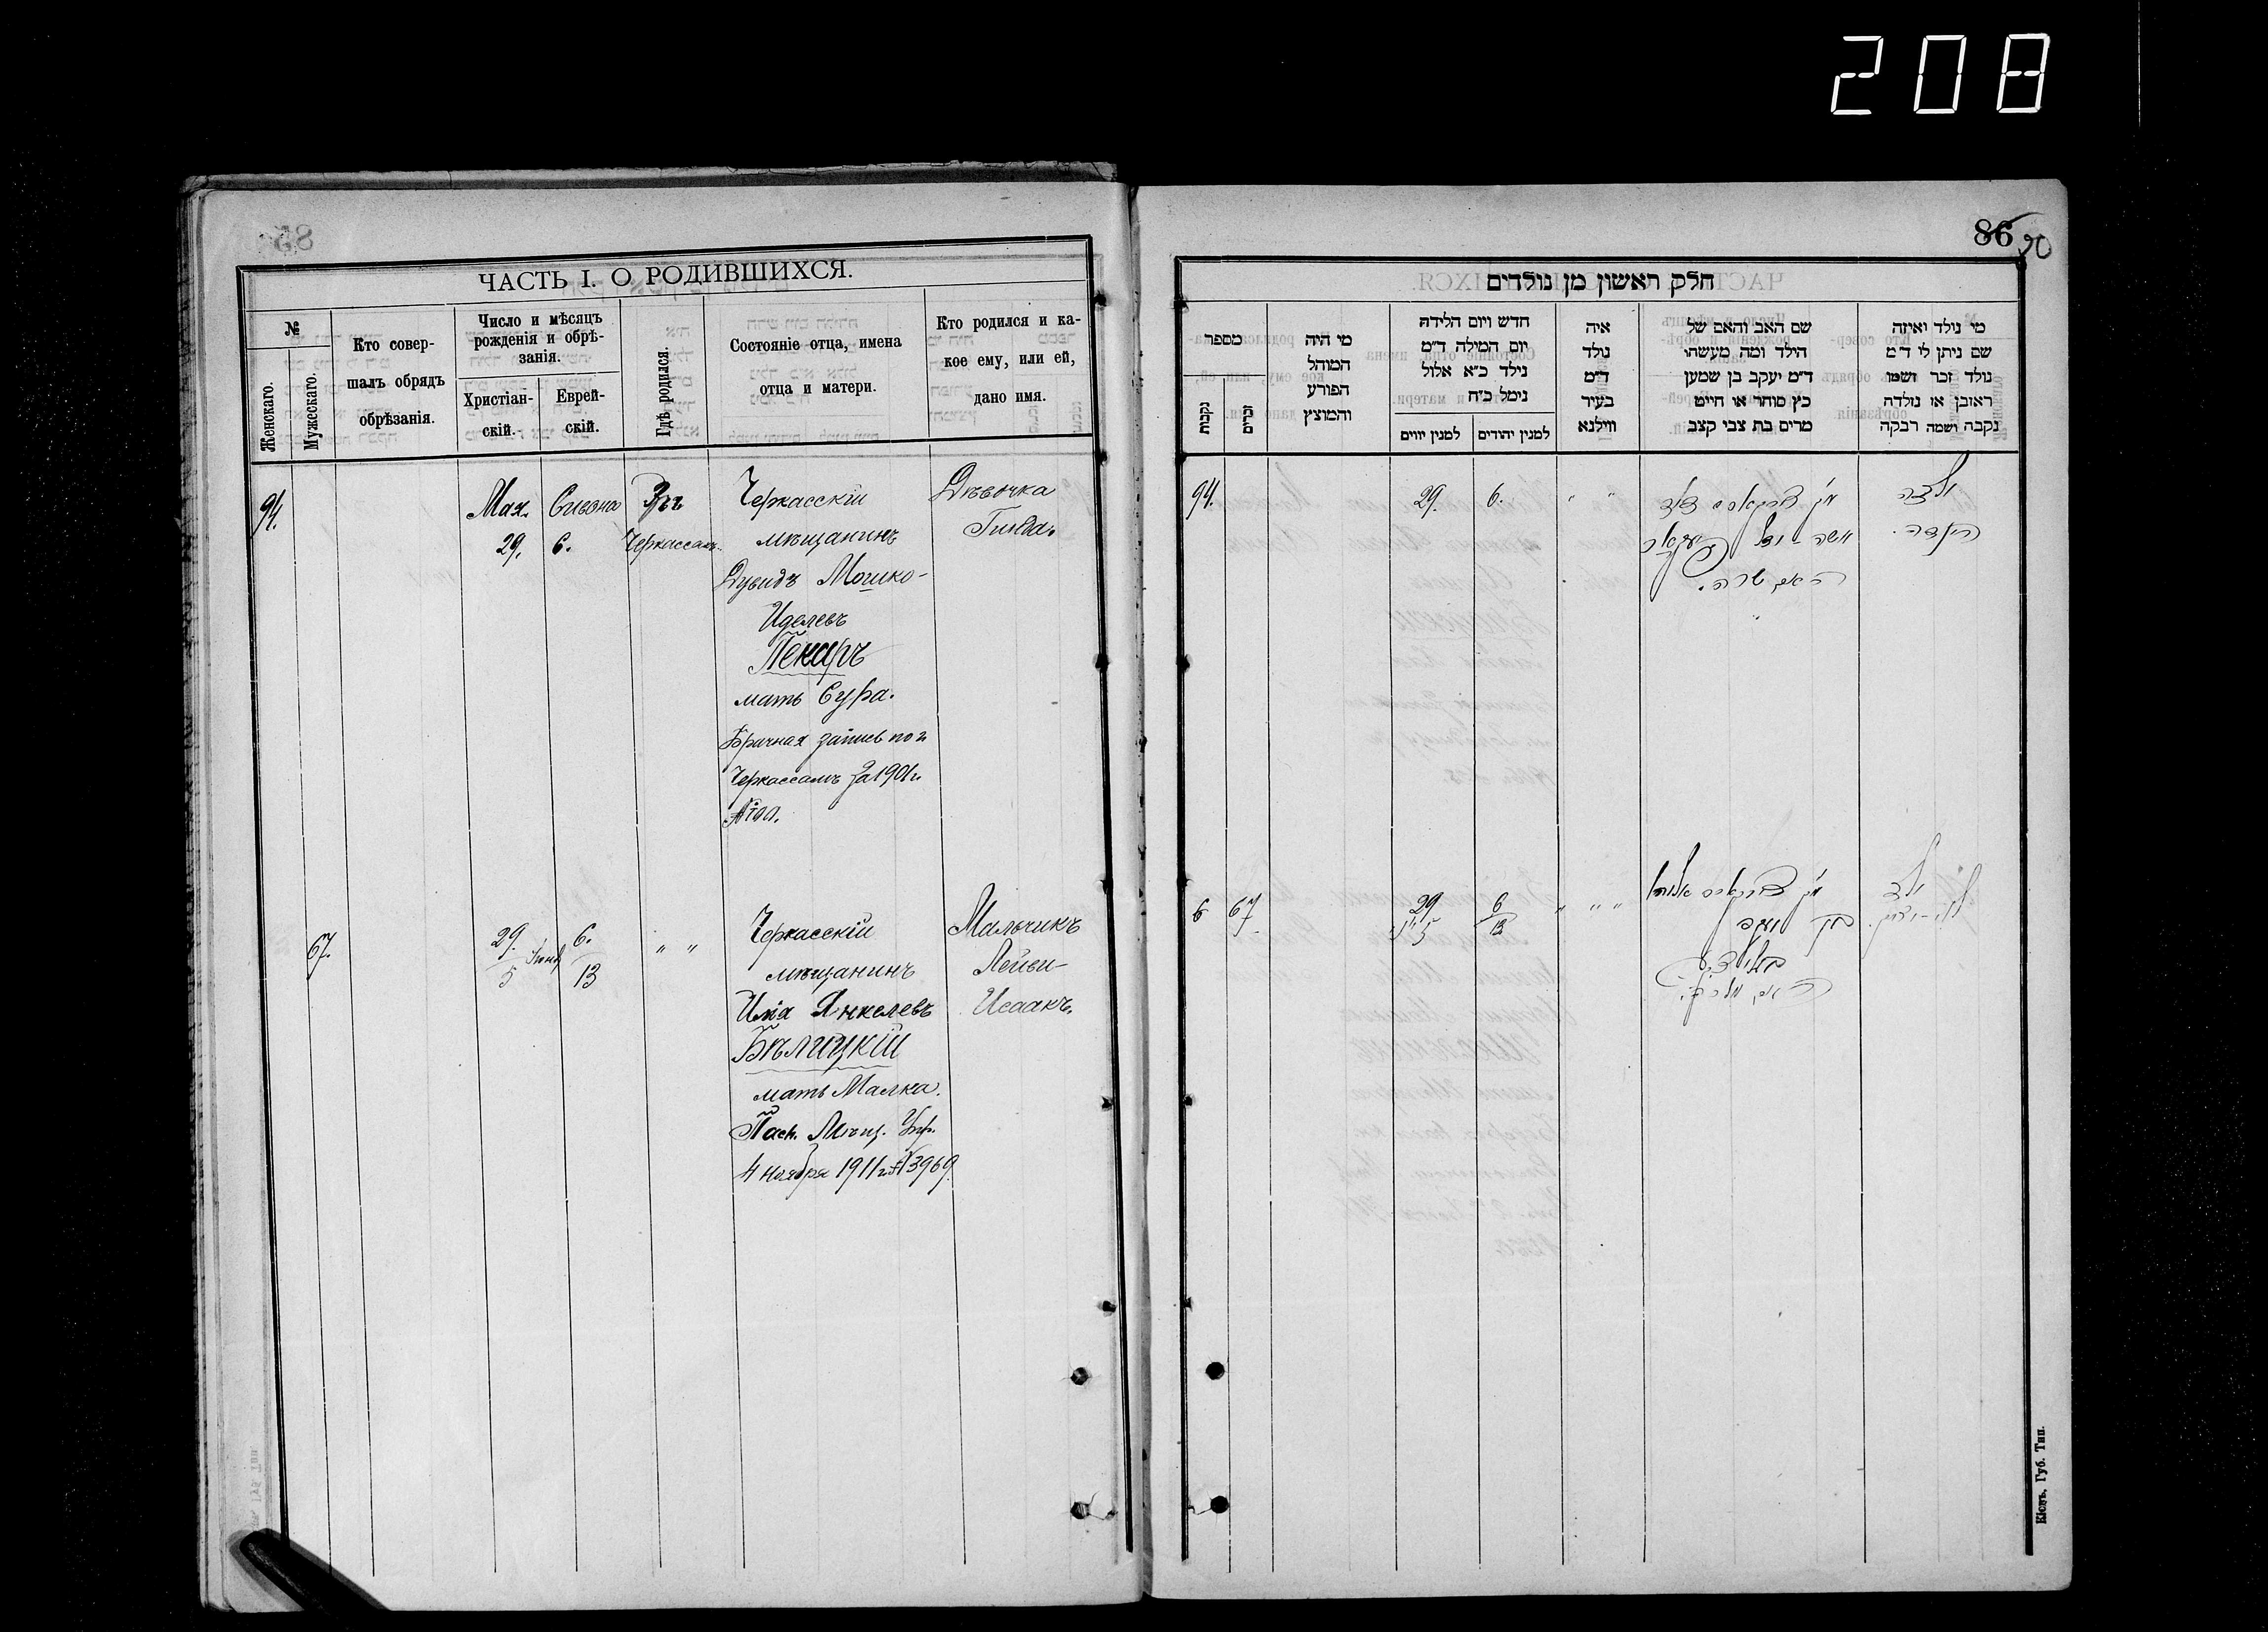 208
ЧАСТЬ I. О РОДИВШИХСЯ.
№
Женскаго.
Мужескаго.
Кто совер-
шалъ обрядъ
обрѣзанія.
Число и мѣсяцъ
рожденія и обрѣ-
занія.
Христіан-
скій.
Еврей-
скій.
Гдѣ родился.
Состояніе отца, имена
отца и матери.
Кто родился и ка-
кое ему, или ей,
дано имя.
94.
Мая.
29.
Сивона
6.
Въ
Черкассахъ.
Черкасскій
мѣщанинъ
Дувидъ Мошко-
Иделевъ
Пекарь
мать Сура.
Брачная запись по г.
Черкассамъ за 1901 г.
Дѣвочка
Гинда.
67.
29.
5 Іюня
6.
13
" "
Черкасскій
мѣщанинъ
Илія Янкелевъ
Бѣлицкій
мать Малка.
Пасп. Мѣщ. Упр.
4 ноября 1911 г. № 3969
Мальчикъ
Лейви-
Исаакъ.
86
90
חלק ראשון מן נולדים
מספר
נקבות
זכרים
מי היה
המוהל
הפורע
והמוצץ
חדש ויום הלידה
יום המילה ד״מ
נילד כ״א אלול
נימל כ״ח
למנין יווים
למנין יהודים
איה
נולד
ד״מ
בעיר
ווילנא
שם האב והאם של
הילד ומה מעשהו
ד״מ יעקב בן שמען
כץ סוחר או חייט
מרים בת צבי קצב
מי נולד ואיזה
שם ניתן לו ד״מ
נולד זכר ושמו
ראובן או נולדה
נקבה ושמה רבקה
94.
29.
6.
" "
ילדה
הינדה.
האם שרה.
6
67
29
5
6
13
" " "
ילד
Кіевъ, Губ. Тип.